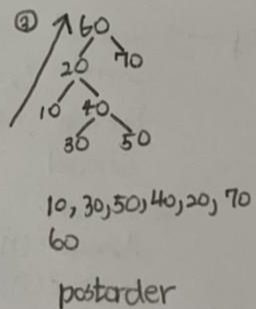 a 60
20 70
10 40
30 50
10, 30, 50, 40, 20, 70
60
postorder